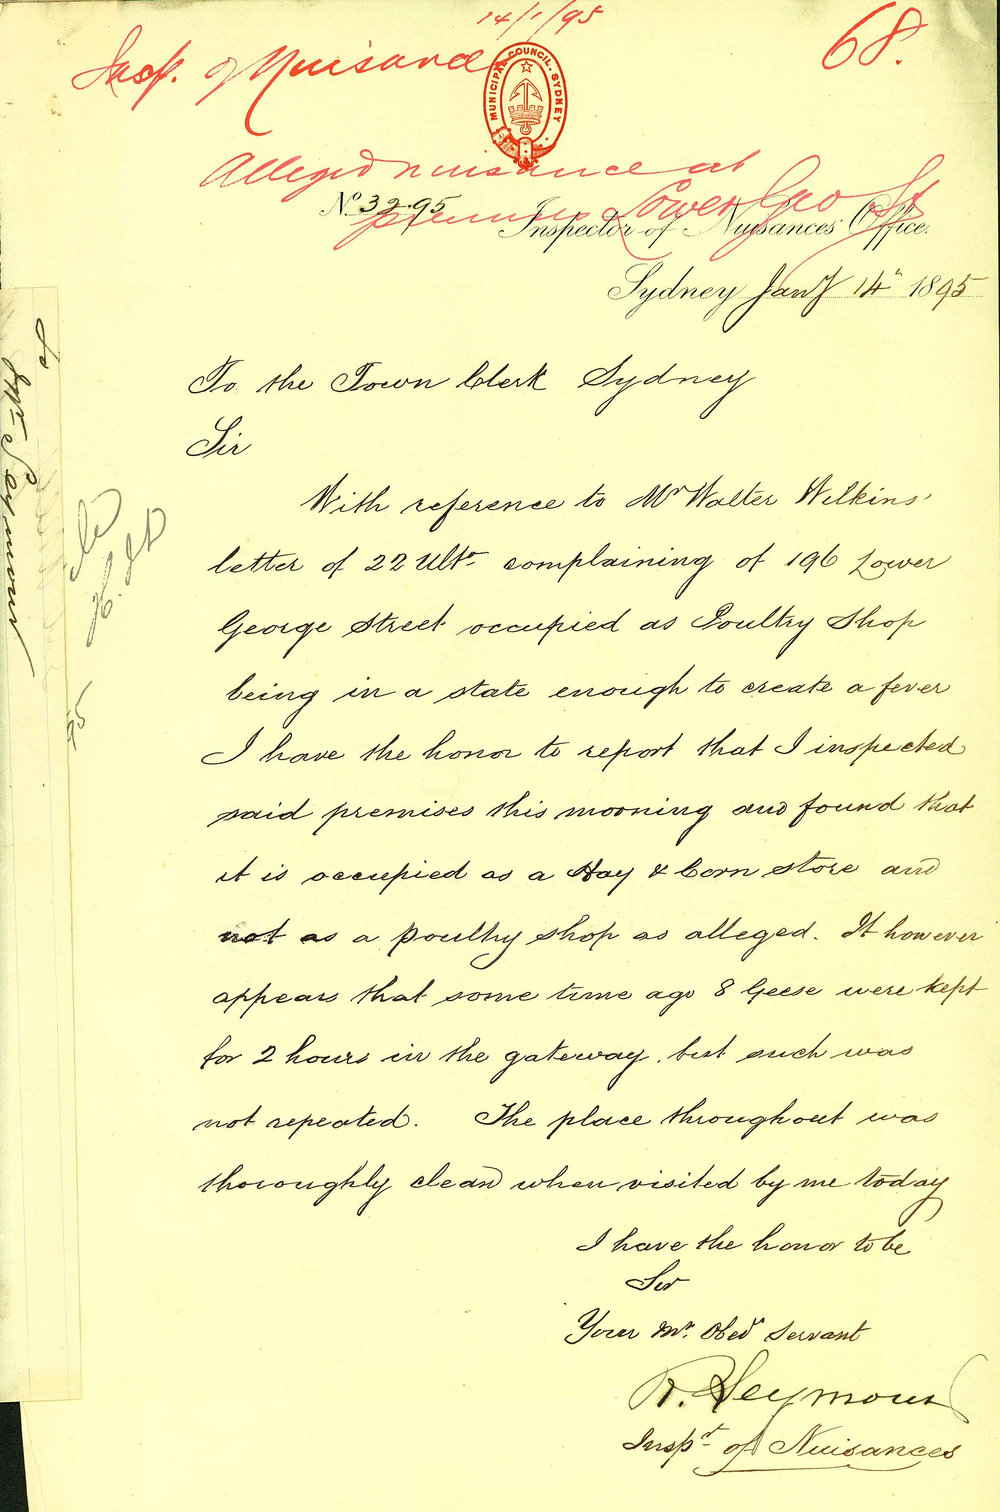 14/1/95
68.
Insp. of Nuisances
MUNICIPAL COUNCIL. SYDNEY
Alleged nuisance at
premises Lower Geo St
No. 32.95
Inspector of Nuisances Office.
Sydney Jany 14th 1895
To the Town Clerk Sydney
Sir
With reference to Mr Walter Wilkins'
letter of 22 Ulto complaining of 196 Lower
George Street occupied as Poultry Shop
being in a state enough to create a fever
I have the honor to report that I inspected
said premises this morning and found that
it is occupied as a Hay & Corn store and
not as a poultry shop as alleged. It however
appears that some time ago 8 Geese were kept
for 2 hours in the gateway. but such was
not repeated. The place throughout was
thoroughly clean when visited by me today
I have the honor to be
Sir
Your Mt. Obedt Servant
R. Seymour
Inspt of Nuisances
To
Seymour
95